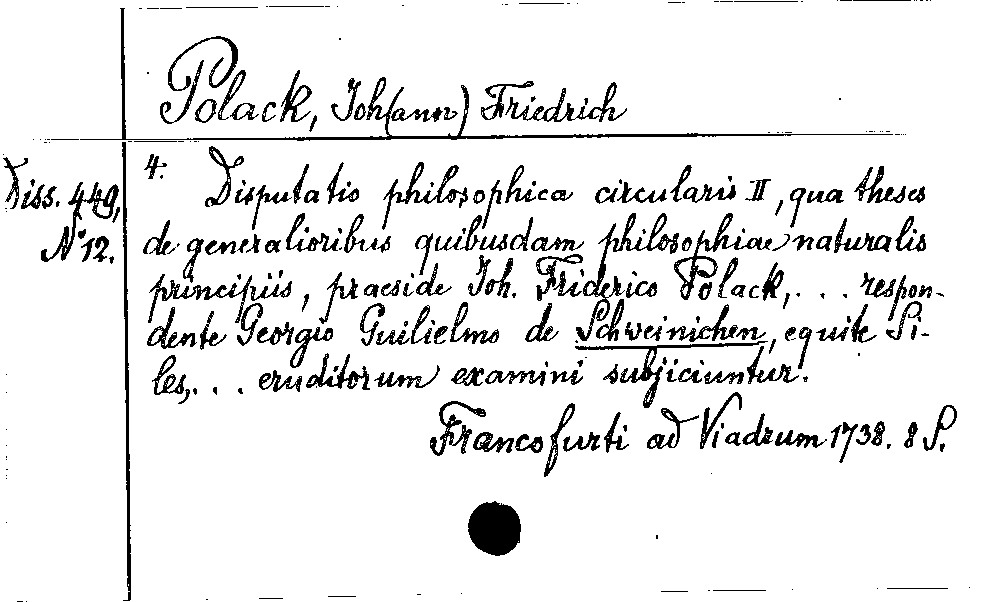 Polack, Joh(ann) Friedrich
Diss. 449,
N° 12.
4. Disputatio philosophica circularis II, qua theses
de generalioribus quibusdam philosophiae naturalis
principiis, praeside Joh. Friderico Polack, . . . respon-
dente Georgio Guilielmo de Schweinichen, equite Si-
les, . . . eruditorum examini subjiciuntur.
Francofurti ad Viadrum 1738. 8 S.